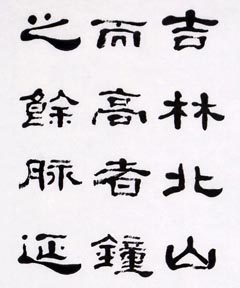 吉林北山
而高者鐘
之餘脈延